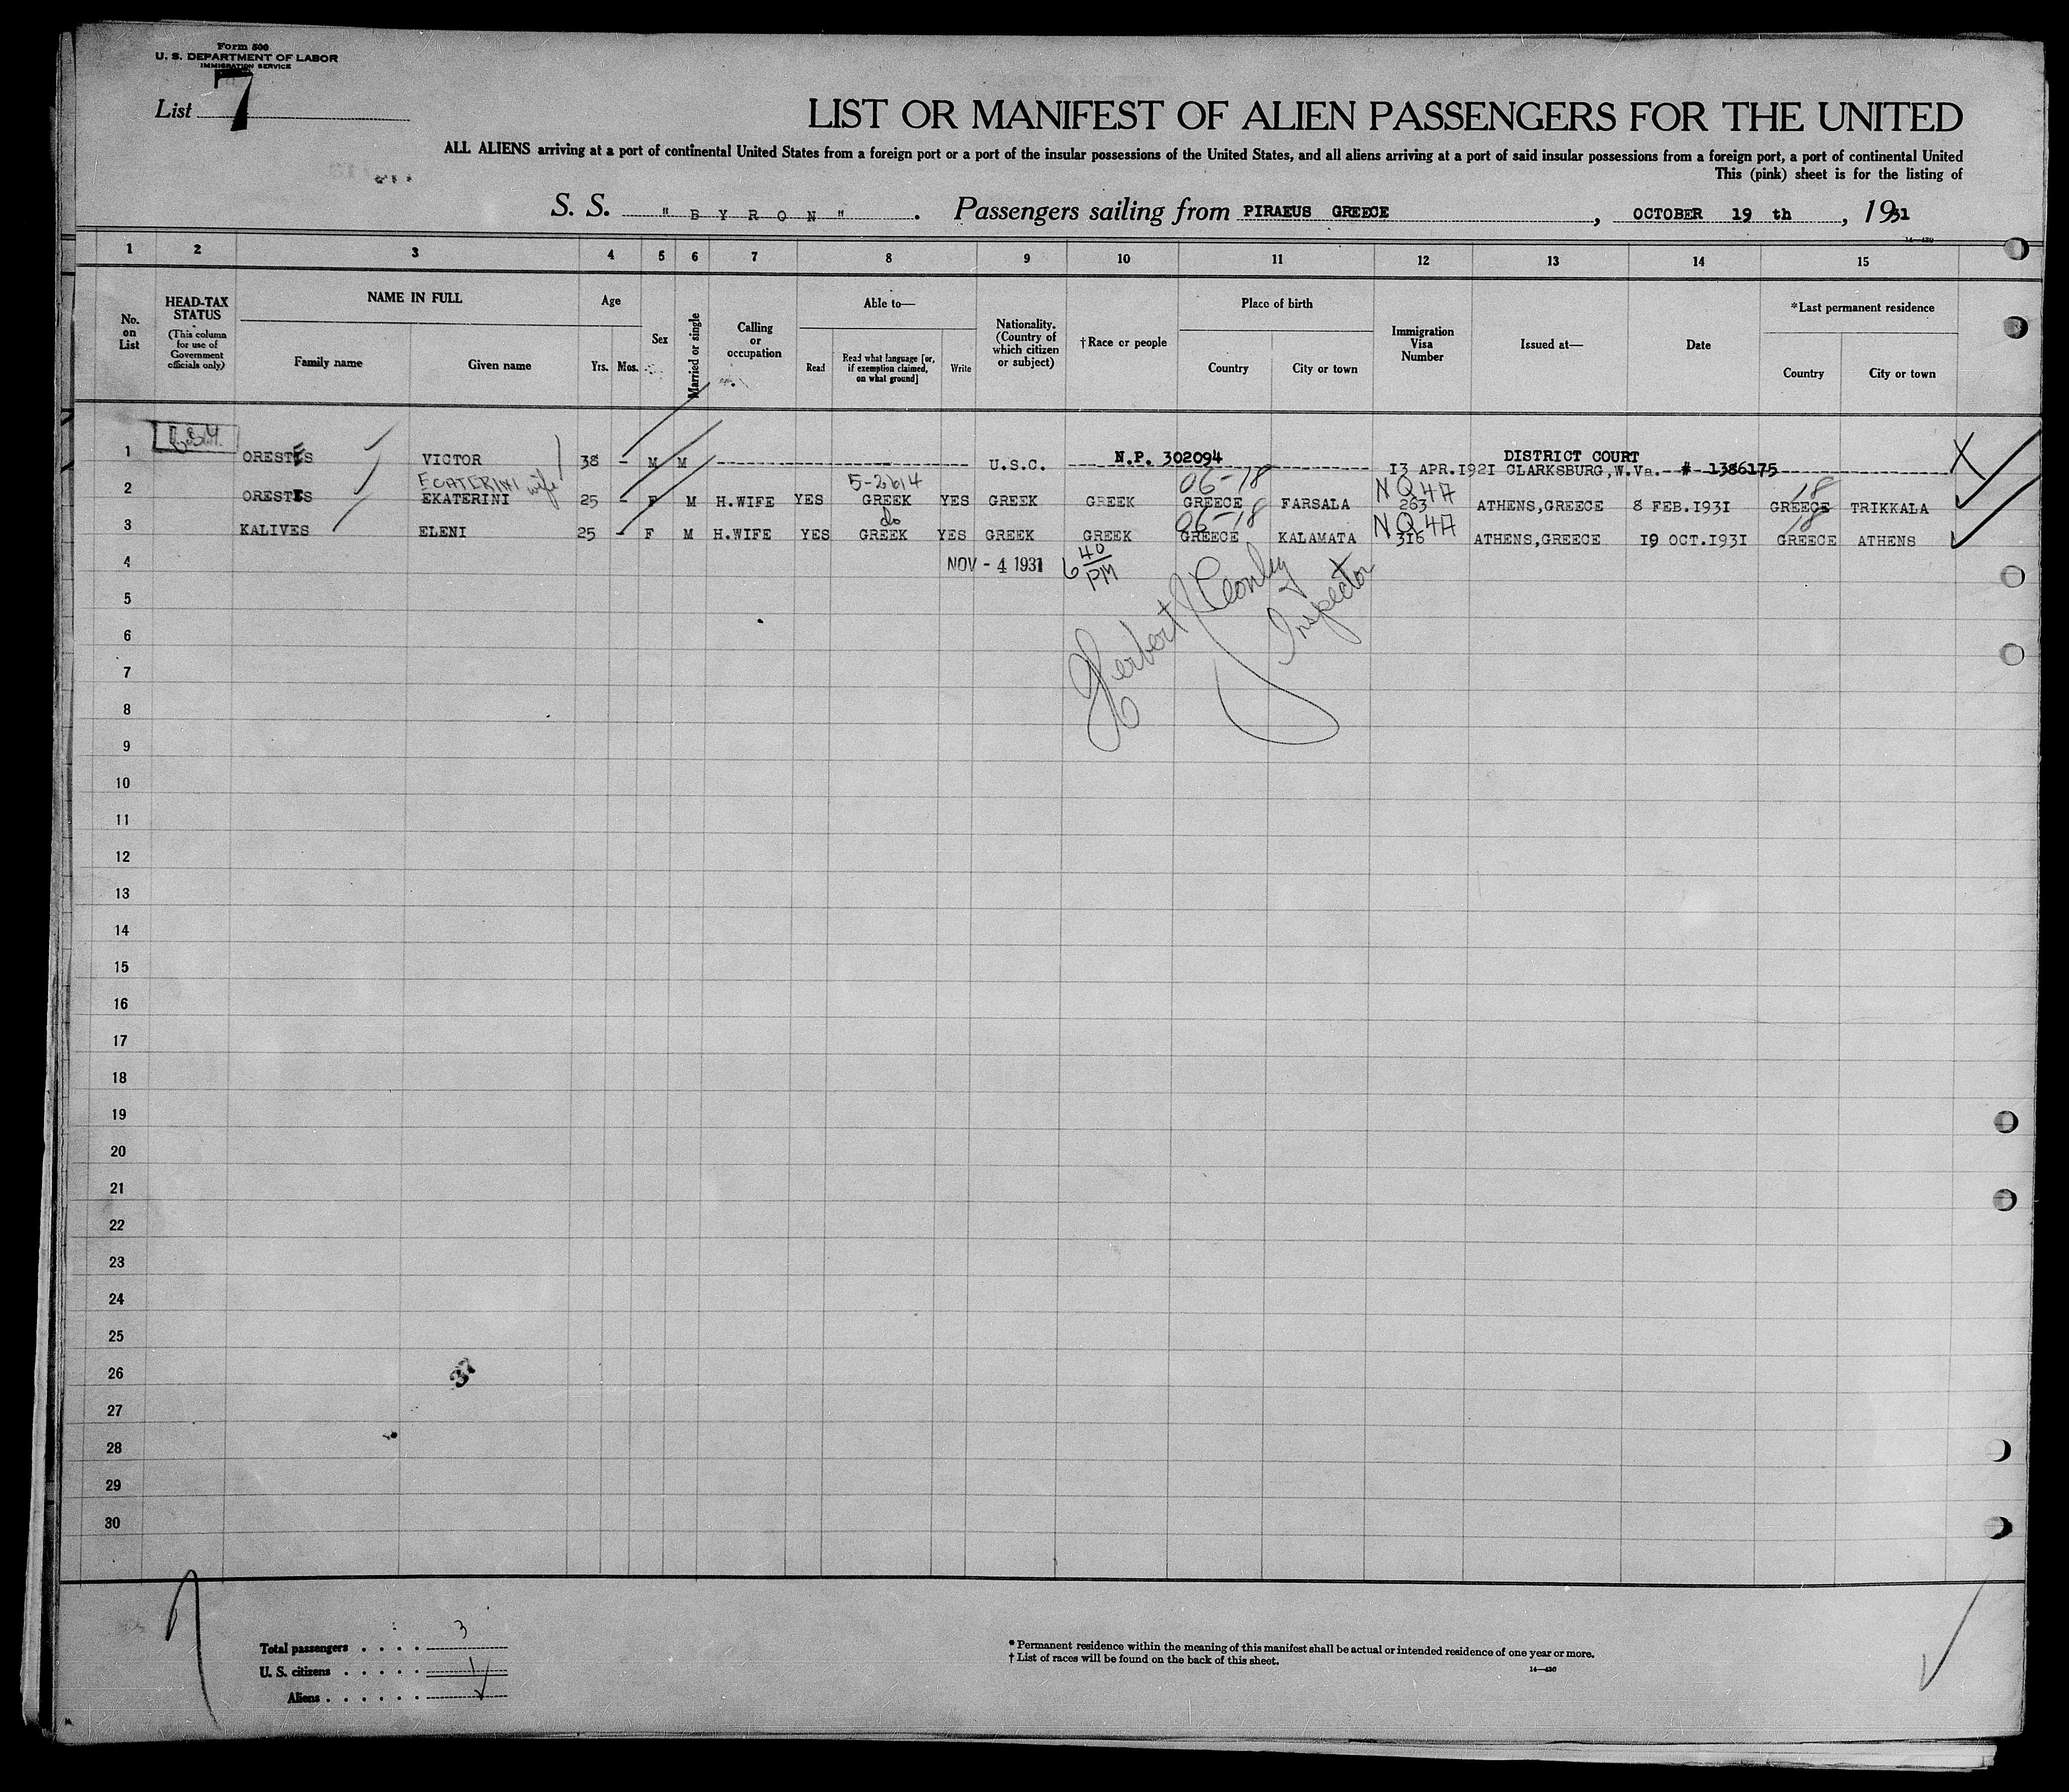 Form 500
U. S. DEPARTMENT OF LABOR
IMMIGRATION SERVICE
List 7
LIST OR MANIFEST OF ALIEN PASSENGERS FOR THE UNITED
ALL ALIENS arriving at a port of continental United States from a foreign port or a port of the insular possessions of the United States, and all aliens arriving at a port of said insular possessions from a foreign port, a port of continental United
This (pink) sheet is for the listing of
S. S. "BYRON". Passengers sailing from PIRAEUS GREECE, OCTOBER 19 th, 1931
14—430
1 2 3 4 5 6 7 8 9 10 11 12 13 14 15
No. on List
HEAD-TAX STATUS
(This column for use of Government officials only)
NAME IN FULL
Family name Given name
Age
Yrs. Mos.
Sex
Married or single
Calling or occupation
Able to—
Read
Read what language [or, if exemption claimed, on what ground]
Write
Nationality. (Country of which citizen or subject)
†Race or people
Place of birth
Country City or town
Immigration Visa Number
Issued at—
Date
*Last permanent residence
Country City or town
N.P. 302094 DISTRICT COURT
1 ORESTES VICTOR 38 - M M U.S.C. 13 APR.1921 CLARKSBURG,W.Va. # 1386175 X
ECATERINI wife 5-2614 06-18 NQ4A 18
2 ORESTES EKATERINI 25 - F M H.WIFE YES GREEK YES GREEK GREEK GREECE FARSALA 263 ATHENS,GREECE 8 FEB.1931 GREECE TRIKKALA
do 06-18 NQ4A 18
3 KALIVES ELENI 25 - F M H.WIFE YES GREEK YES GREEK GREEK GREECE KALAMATA 316 ATHENS,GREECE 19 OCT.1931 GREECE ATHENS
4 NOV - 4 1931 6 40 PM
5
6 Herbert Inspector
7
8
9
10
11
12
13
14
15
16
17
18
19
20
21
22
23
24
25
26
27
28
29
30
Total passengers . . . . 3
U. S. citizens . . . . . 1
Aliens . . . . . .
* Permanent residence within the meaning of this manifest shall be actual or intended residence of one year or more.
† List of races will be found on the back of this sheet.
14—430